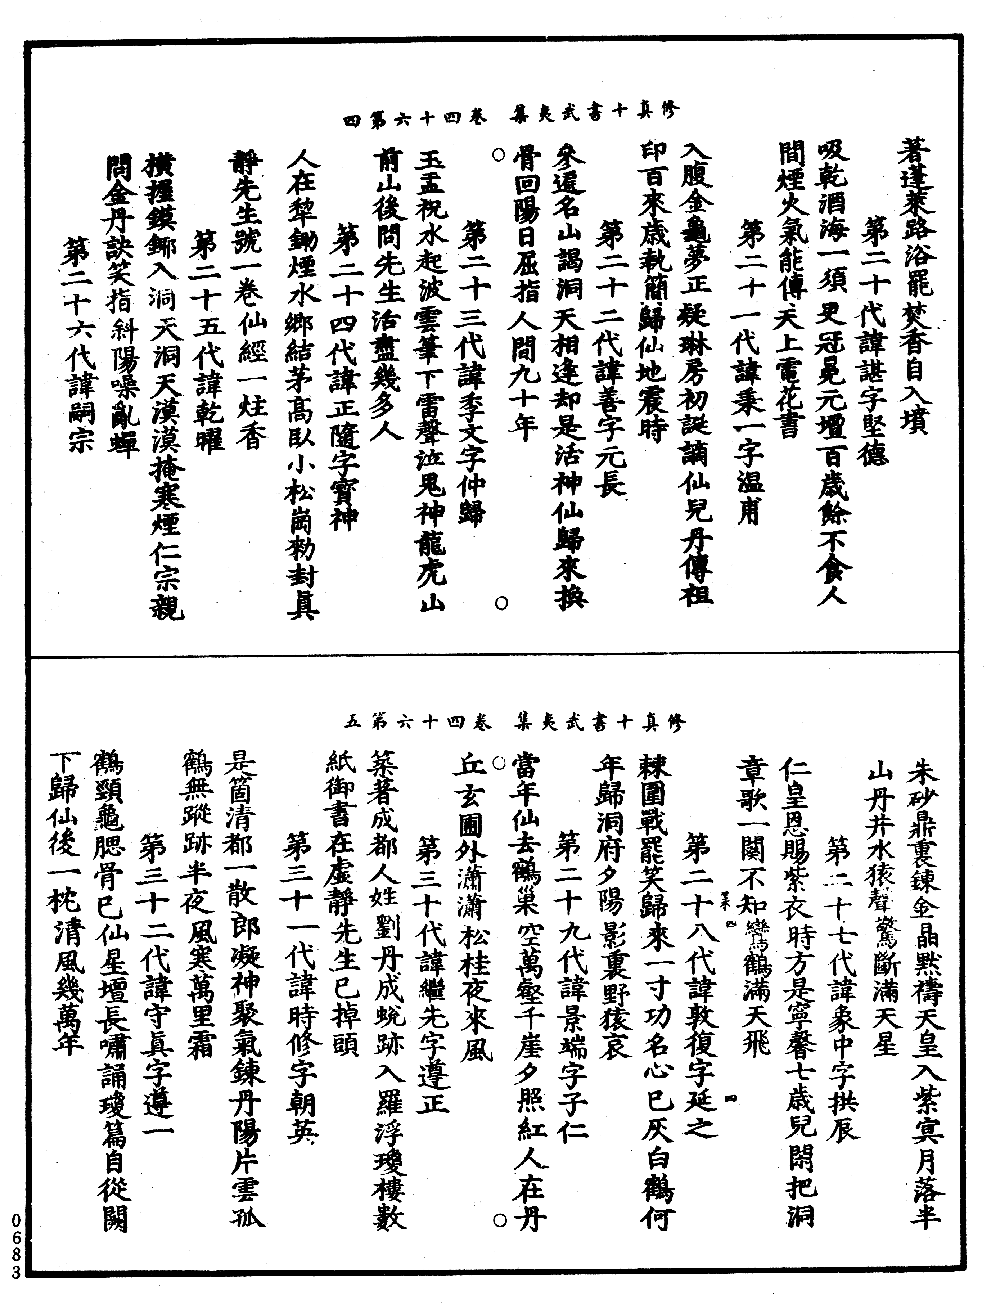 修真十書武夷集　卷四十六第四
著蓬萊路浴罷焚香自入墳
第二十代諱諶字堅德
吸乾酒海一須臾冠冕元壇百歲餘不食人
間煙火氣能傳天上電花書
第二十一代諱秉一字溫甫
入腹金龜夢正疑琳房初誕謫仙兒丹傳祖
印百來歲執簡歸仙地震時
第二十二代諱善字元長
參遍名山謁洞天相逢却是活神仙歸來換
骨回陽日屈指人間九十年
第二十三代諱季文字仲歸
玉盂祝水起波雲筆下雷聲泣鬼神龍虎山
前山後問先生活盡幾多人
第二十四代諱正隨字寶神
人在犂鋤煙水鄉結茅高臥小松崗勑封真
靜先生號一卷仙經一炷香
第二十五代諱乾曜
橫握鏌鋣入洞天洞天漠漠掩寒煙仁宗親
問金丹訣笑指斜陽噪亂蟬
第二十六代諱嗣宗
修真十書武夷集　卷四十六第五
朱砂鼎裏鍊金晶默禱天皇入紫冥月落半
山丹井水猿聲驚斷滿天星
第二十七代諱象中字拱辰
仁皇恩賜紫衣時方是寧馨七歲兒閑把洞
章歌一闋不知鸞鶴滿天飛
第二十八代諱敦復字延之
棘圍戰罷笑歸來一寸功名心已灰白鶴何
年歸洞府夕陽影裏野猿哀
第二十九代諱景端字子仁
當年仙去鶴巢空萬壑千崖夕照紅人在丹
丘玄圃外瀟瀟松桂夜來風
第三十代諱繼先字遵正
築著成都人姓劉丹成蛻跡入羅浮瓊樓數
紙御書在虛靜先生已掉頭
第三十一代諱時修字朝英
是箇清都一散郎凝神聚氣鍊丹陽片雲孤
鶴無蹤跡半夜風寒萬里霜
第三十二代諱守真字遵一
鶴頸龜腮骨已仙星壇長嘯誦瓊篇自從闕
下歸仙後一枕清風幾萬年
0683